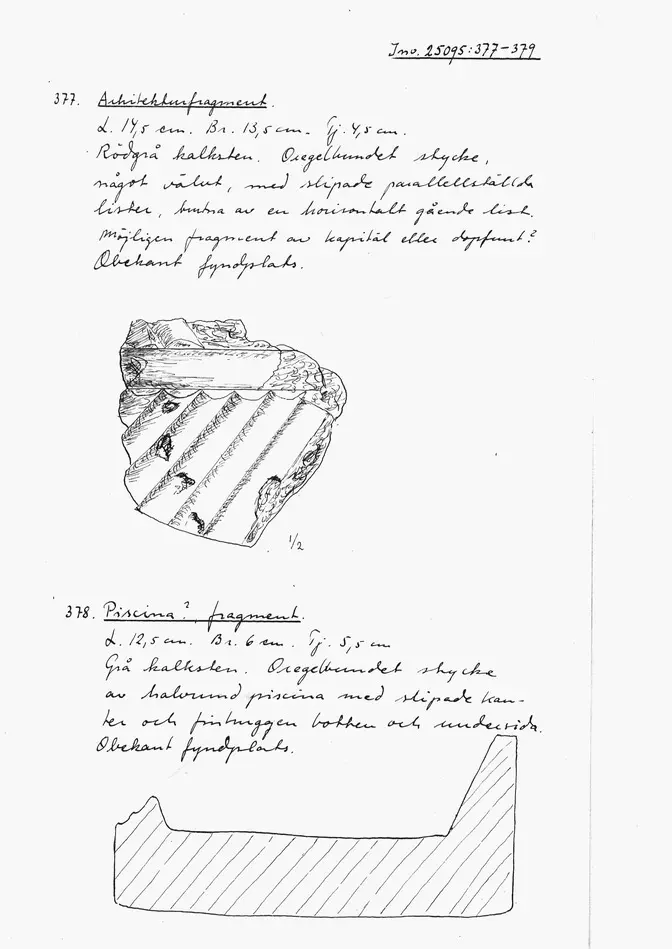 Inv. 25095:377-379
377. Arkitekturfragment.
L. 14,5 cm. Br. 13,5 cm. Tj. 4,5 cm.
Rödgrå kalksten. Oregelbundet stycke,
något välvt, med slipade parallellställda
lister, brutna av en horisontalt gående list.
Möjligen fragment av kapitäl eller dopfunt?
Obekant fyndplats.
1/2
378. Piscina?, fragment.
L. 12,5 cm. Br. 6 cm. Tj. 5,5 cm
Grå kalksten. Oregelbundet stycke
av halvrund piscina med slipade kan-
ter och finhuggen botten och undersida.
Obekant fyndplats.